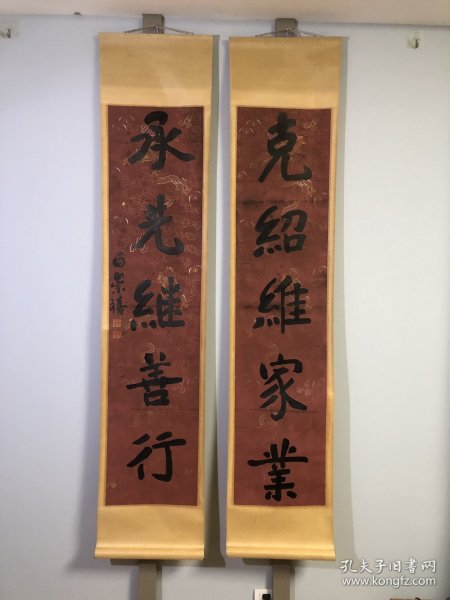 克紹維家業
承先継善行
白崇禧
孔夫子旧书网
www.kongfz.com